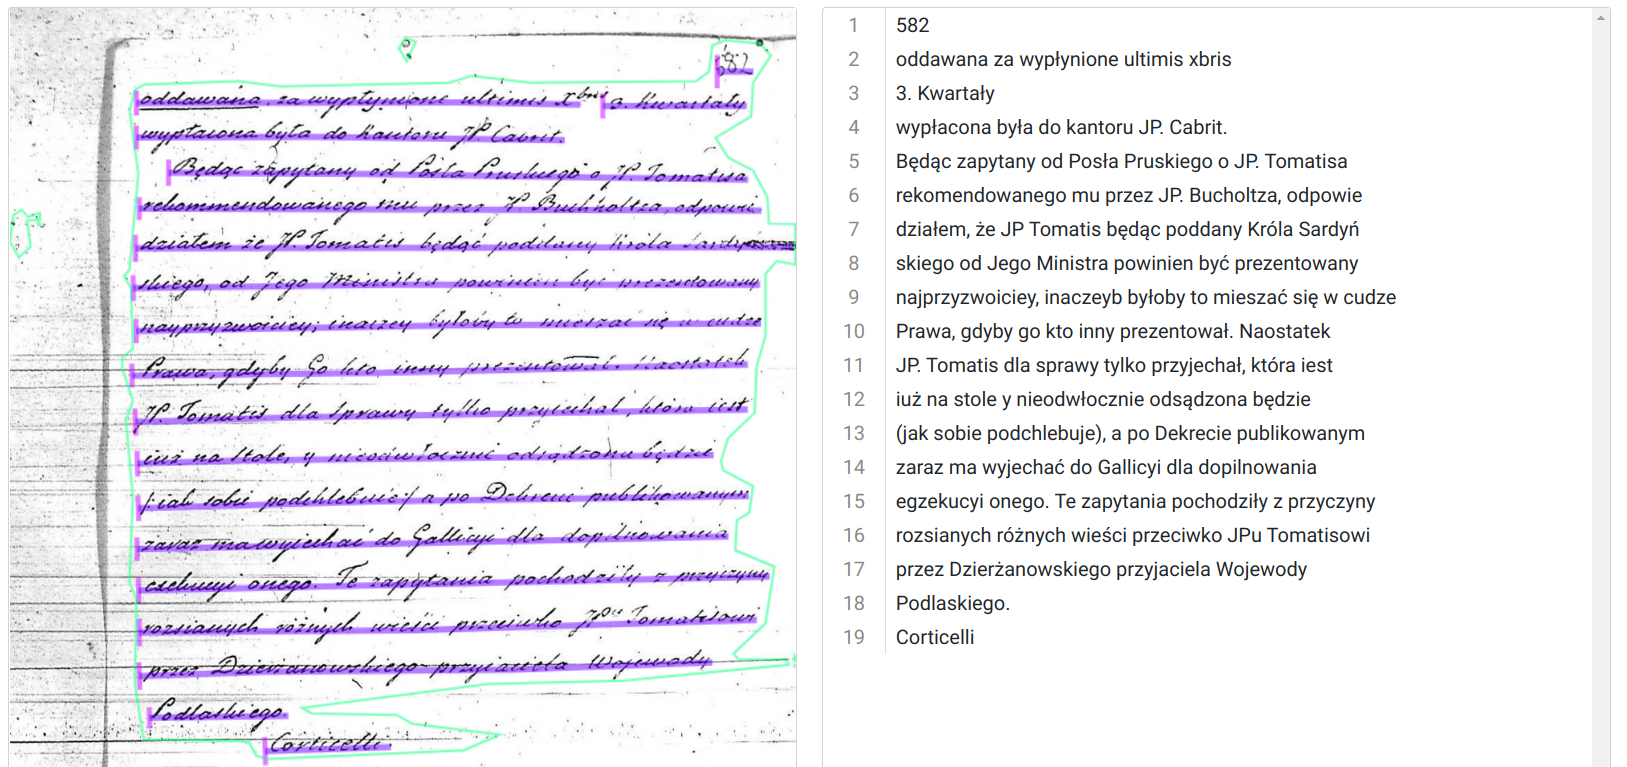 582
oddawana za wypłynione ultimis xbris 3. Kwartały
wypłacona była do Kantoru JP. Cabrit.
Będąc zapytany od Posła Pruskiego o JP. Tomatisa
rekommendowanego mu przez JP Buchholtza, odpowie
działem że JP. Tomatis będąc poddany Króla Sardyń
skiego, od Jego Ministra powinien być prezentowany
nayprzyzwoiciey; inaczey byłoby to mieszać się w cudze
Prawa, gdyby Go kto inny prezentował. Naostatek
JP. Tomatis dla sprawy tylko przyiechał, która iest
iuż na stole, y nieodwłocznie odsądzona będzie
/:iak sobie podchlebuie:/ a po Dekrecie publikowanym
zaraz ma wyiechać do Gallicyi dla dopilnowania
exekucyi onego. Te zapytania pochodziły z przyczyny
rozsianych różnych wieści przeciwko JPu Tomatisowi
przez Dzierżanowskiego przyiaciela Wojewody
Podlaskiego.
Corticelli.
1 582
2 oddawana za wypłynione ultimis xbris
3 3. Kwartały
4 wypłacona była do kantoru JP. Cabrit.
5 Będąc zapytany od Posła Pruskiego o JP. Tomatisa
6 rekomendowanego mu przez JP. Bucholtza, odpowie
7 działem, że JP Tomatis będąc poddany Króla Sardyń
8 skiego od Jego Ministra powinien być prezentowany
9 najprzyzwoiciey, inaczeyb byłoby to mieszać się w cudze
10 Prawa, gdyby go kto inny prezentował. Naostatek
11 JP. Tomatis dla sprawy tylko przyjechał, która iest
12 iuż na stole y nieodwłocznie odsądzona będzie
13 (jak sobie podchlebuje), a po Dekrecie publikowanym
14 zaraz ma wyjechać do Gallicyi dla dopilnowania
15 egzekucyi onego. Te zapytania pochodziły z przyczyny
16 rozsianych różnych wieści przeciwko JPu Tomatisowi
17 przez Dzierżanowskiego przyjaciela Wojewody
18 Podlaskiego.
19 Corticelli